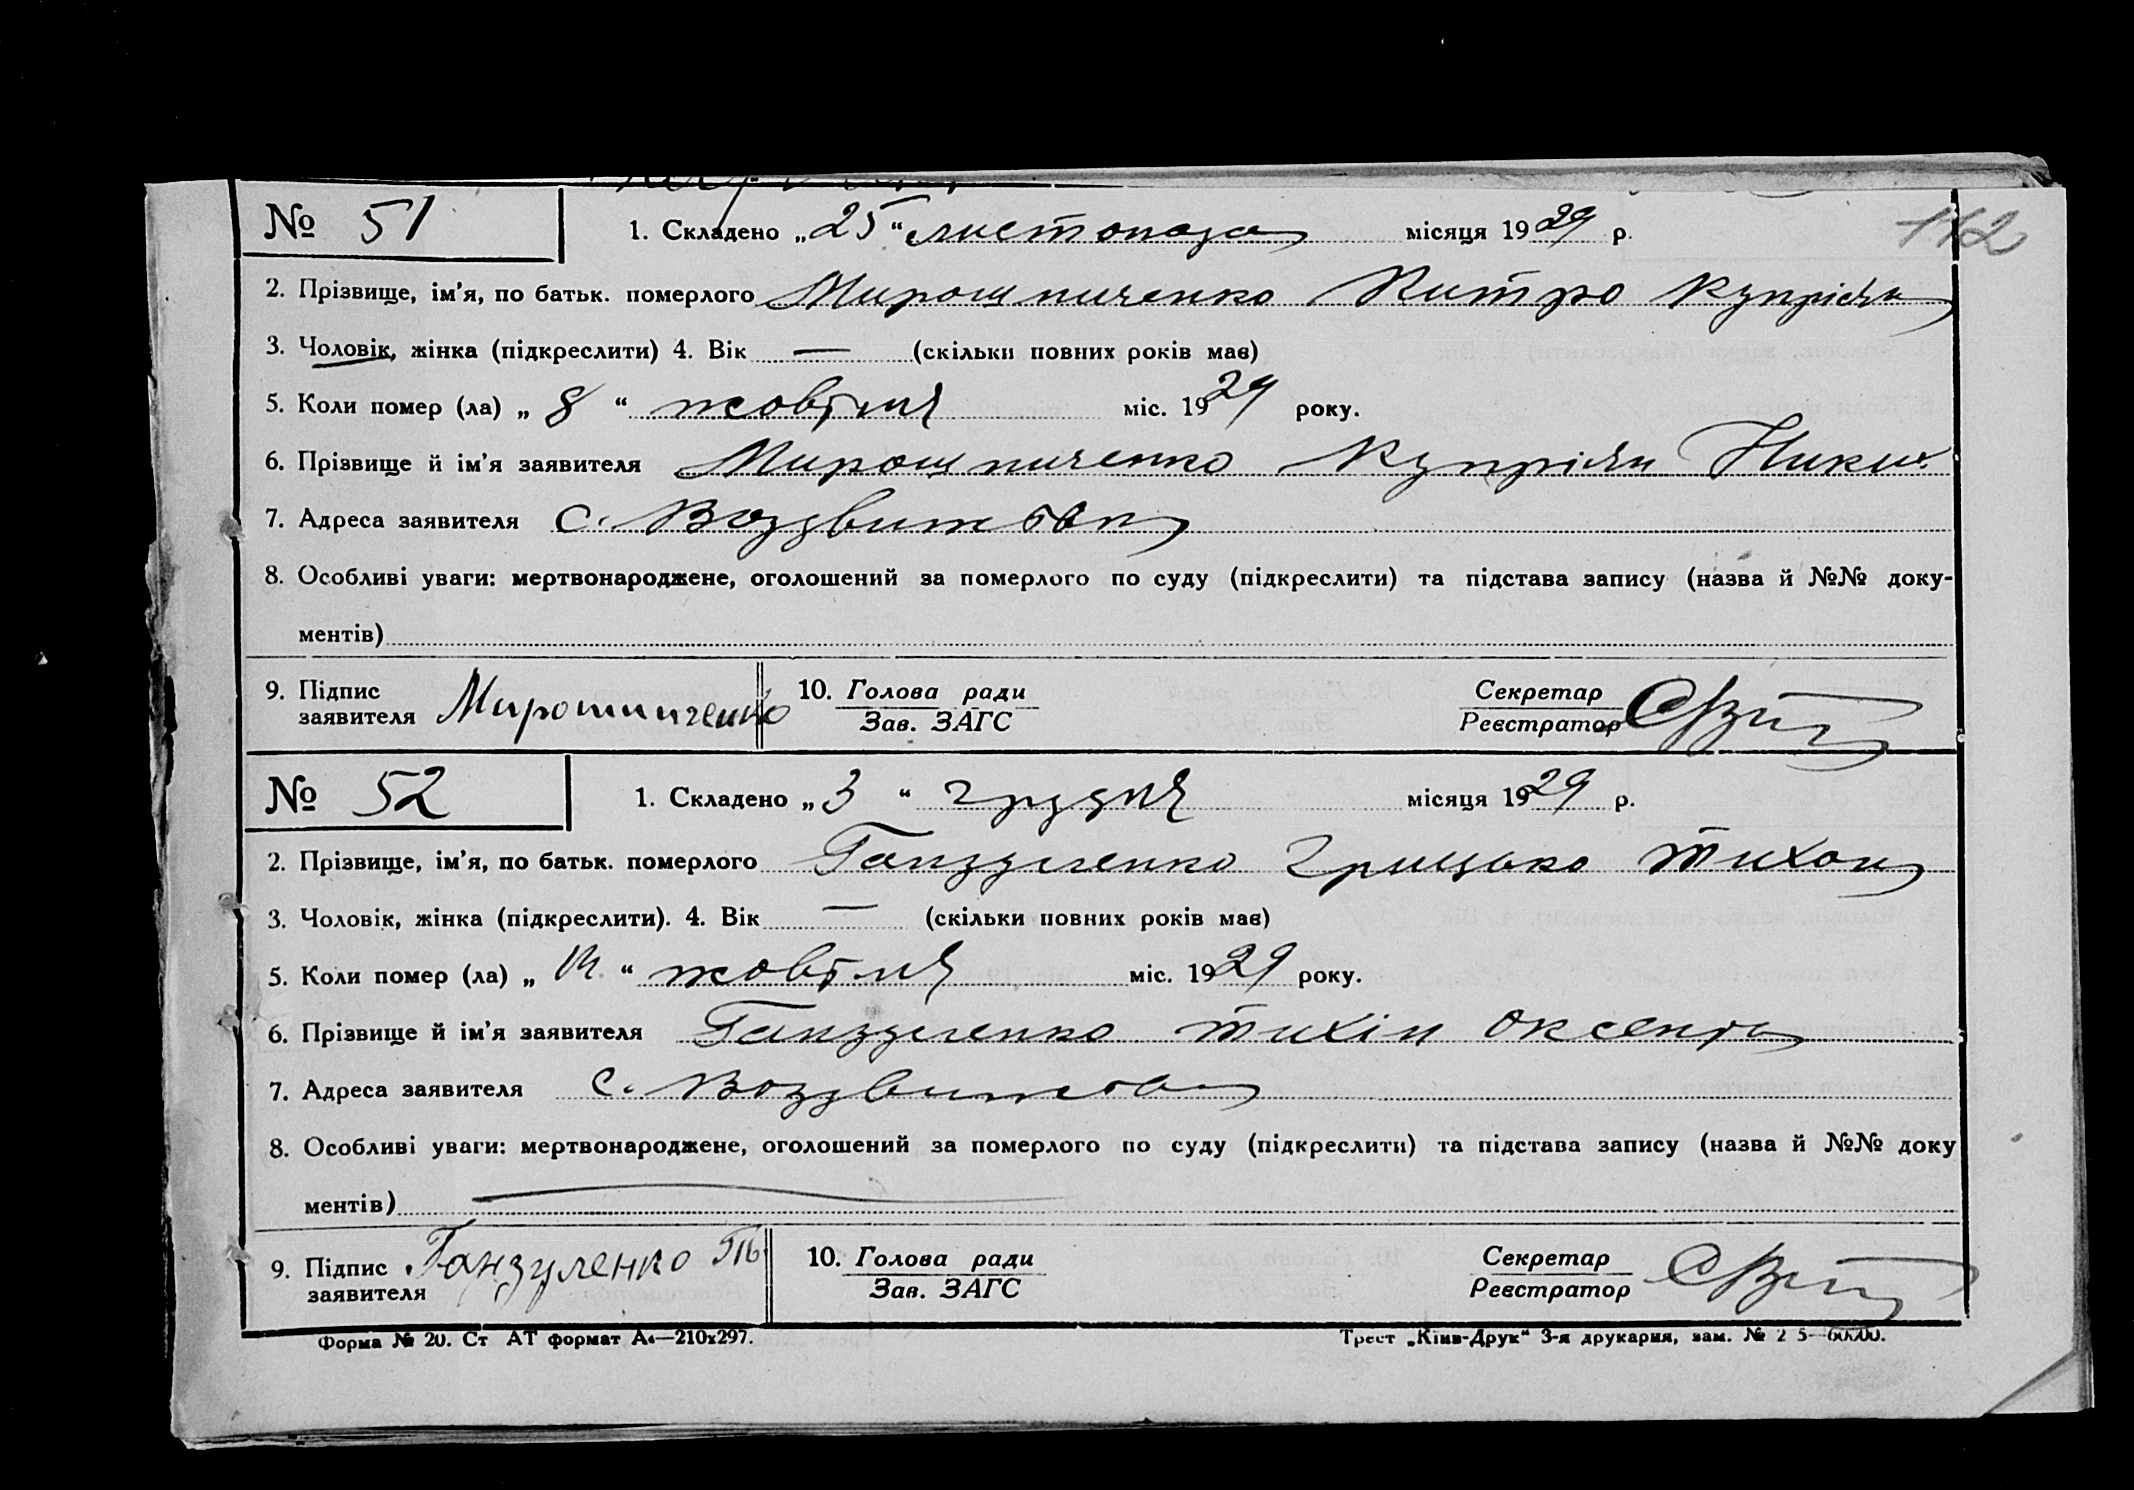 112
№ 51 1. Складено „25“ листопада місяця 1929 р.
2. Прізвище, ім’я, по батьк. померлого Мирошниченко Купріян
3. Чоловік, жінка (підкреслити) 4. Вік — (скільки повних років має)
5. Коли помер (ла) „8“ жовтня міс. 1929 року.
6. Прізвище й ім’я заявителя Мирошниченко Купріян Никиx.
7. Адреса заявителя с. Воздвижівка
8. Особливі уваги: мертвонароджене, оголошений за померлого по суду (підкреслити) та підстава запису (назва й №№ доку-
ментів)
9. Підпис заявителя Мирошниченко 10. Голова ради Секретар
Зав. ЗАГС Реєстратор
№ 52 1. Складено „3“ грудня місяця 1929 р.
2. Прізвище, ім’я, по батьк. померлого Ганзуленко Грицько Тихон
3. Чоловік, жінка (підкреслити). 4. Вік — (скільки повних років має)
5. Коли помер (ла) „ “ жовтня міс. 1929 року.
6. Прізвище й ім’я заявителя Ганзуленко Тихін Оксент
7. Адреса заявителя с. Воздвижівка
8. Особливі уваги: мертвонароджене, оголошений за померлого по суду (підкреслити) та підстава запису (назва й №№ доку
ментів)
9. Підпис заявителя Ганзуленко 10. Голова ради Секретар
Зав. ЗАГС Реєстратор
Форма № 20. Ст АТ формат А₄—210х297. Трест „Київ-Друк“ 3-я друкарня, зам. №